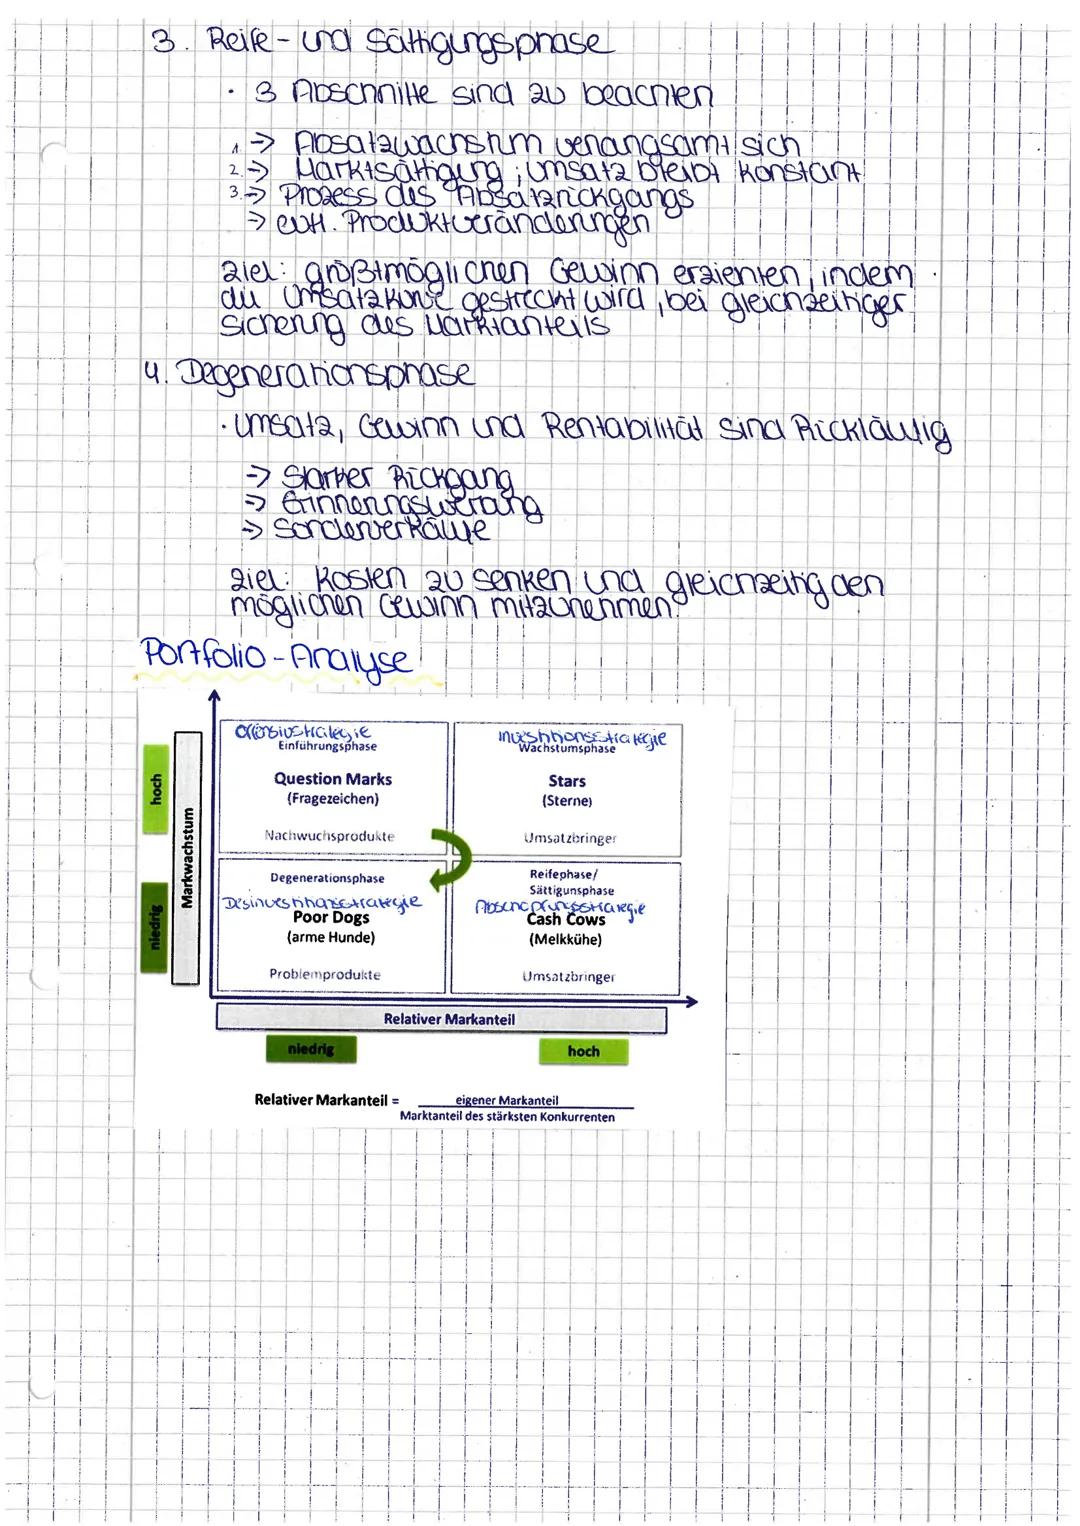 3. Reife- und Sättigungsphase
· 3 Abschnitte sind zu beachten
1. → Absatzwachstum verlangsamt sich
2. → Marktsättigung ; Umsatz bleibt konstant
3. → Prozess des Absatzrückgangs
→ evtl. Produktveränderungen
Ziel: größtmöglichen Gewinn erzielen, indem
die Umsatzkurve gestreckt wird, bei gleichzeitiger
Sicherung des Marktanteils
4. Degenerationsphase
· Umsatz, Gewinn und Rentabilität sind Rückläufig
→ Starker Rückgang
→ Erinnerungswerbung
→ Sonderverkäufe
Ziel: Kosten zu senken und gleichzeitig den
möglichen Gewinn mitzunehmen.
Portfolio-Analyse
Offensivstrategie
Einführungsphase
Question Marks
(Fragezeichen)
Nachwuchsprodukte
Investitionsstrategie
Wachstumsphase
Stars
(Sterne)
Umsatzbringer
hoch
Markwachstum
niedrig
Degenerationsphase
Desinvestitionsstrategie
Poor Dogs
(arme Hunde)
Problemprodukte
Reifephase/
Sättigunsphase
Abschöpfungsstrategie
Cash Cows
(Melkkühe)
Umsatzbringer
Relativer Markanteil
niedrig
hoch
Relativer Markanteil = eigener Markanteil
Marktanteil des stärksten Konkurrenten